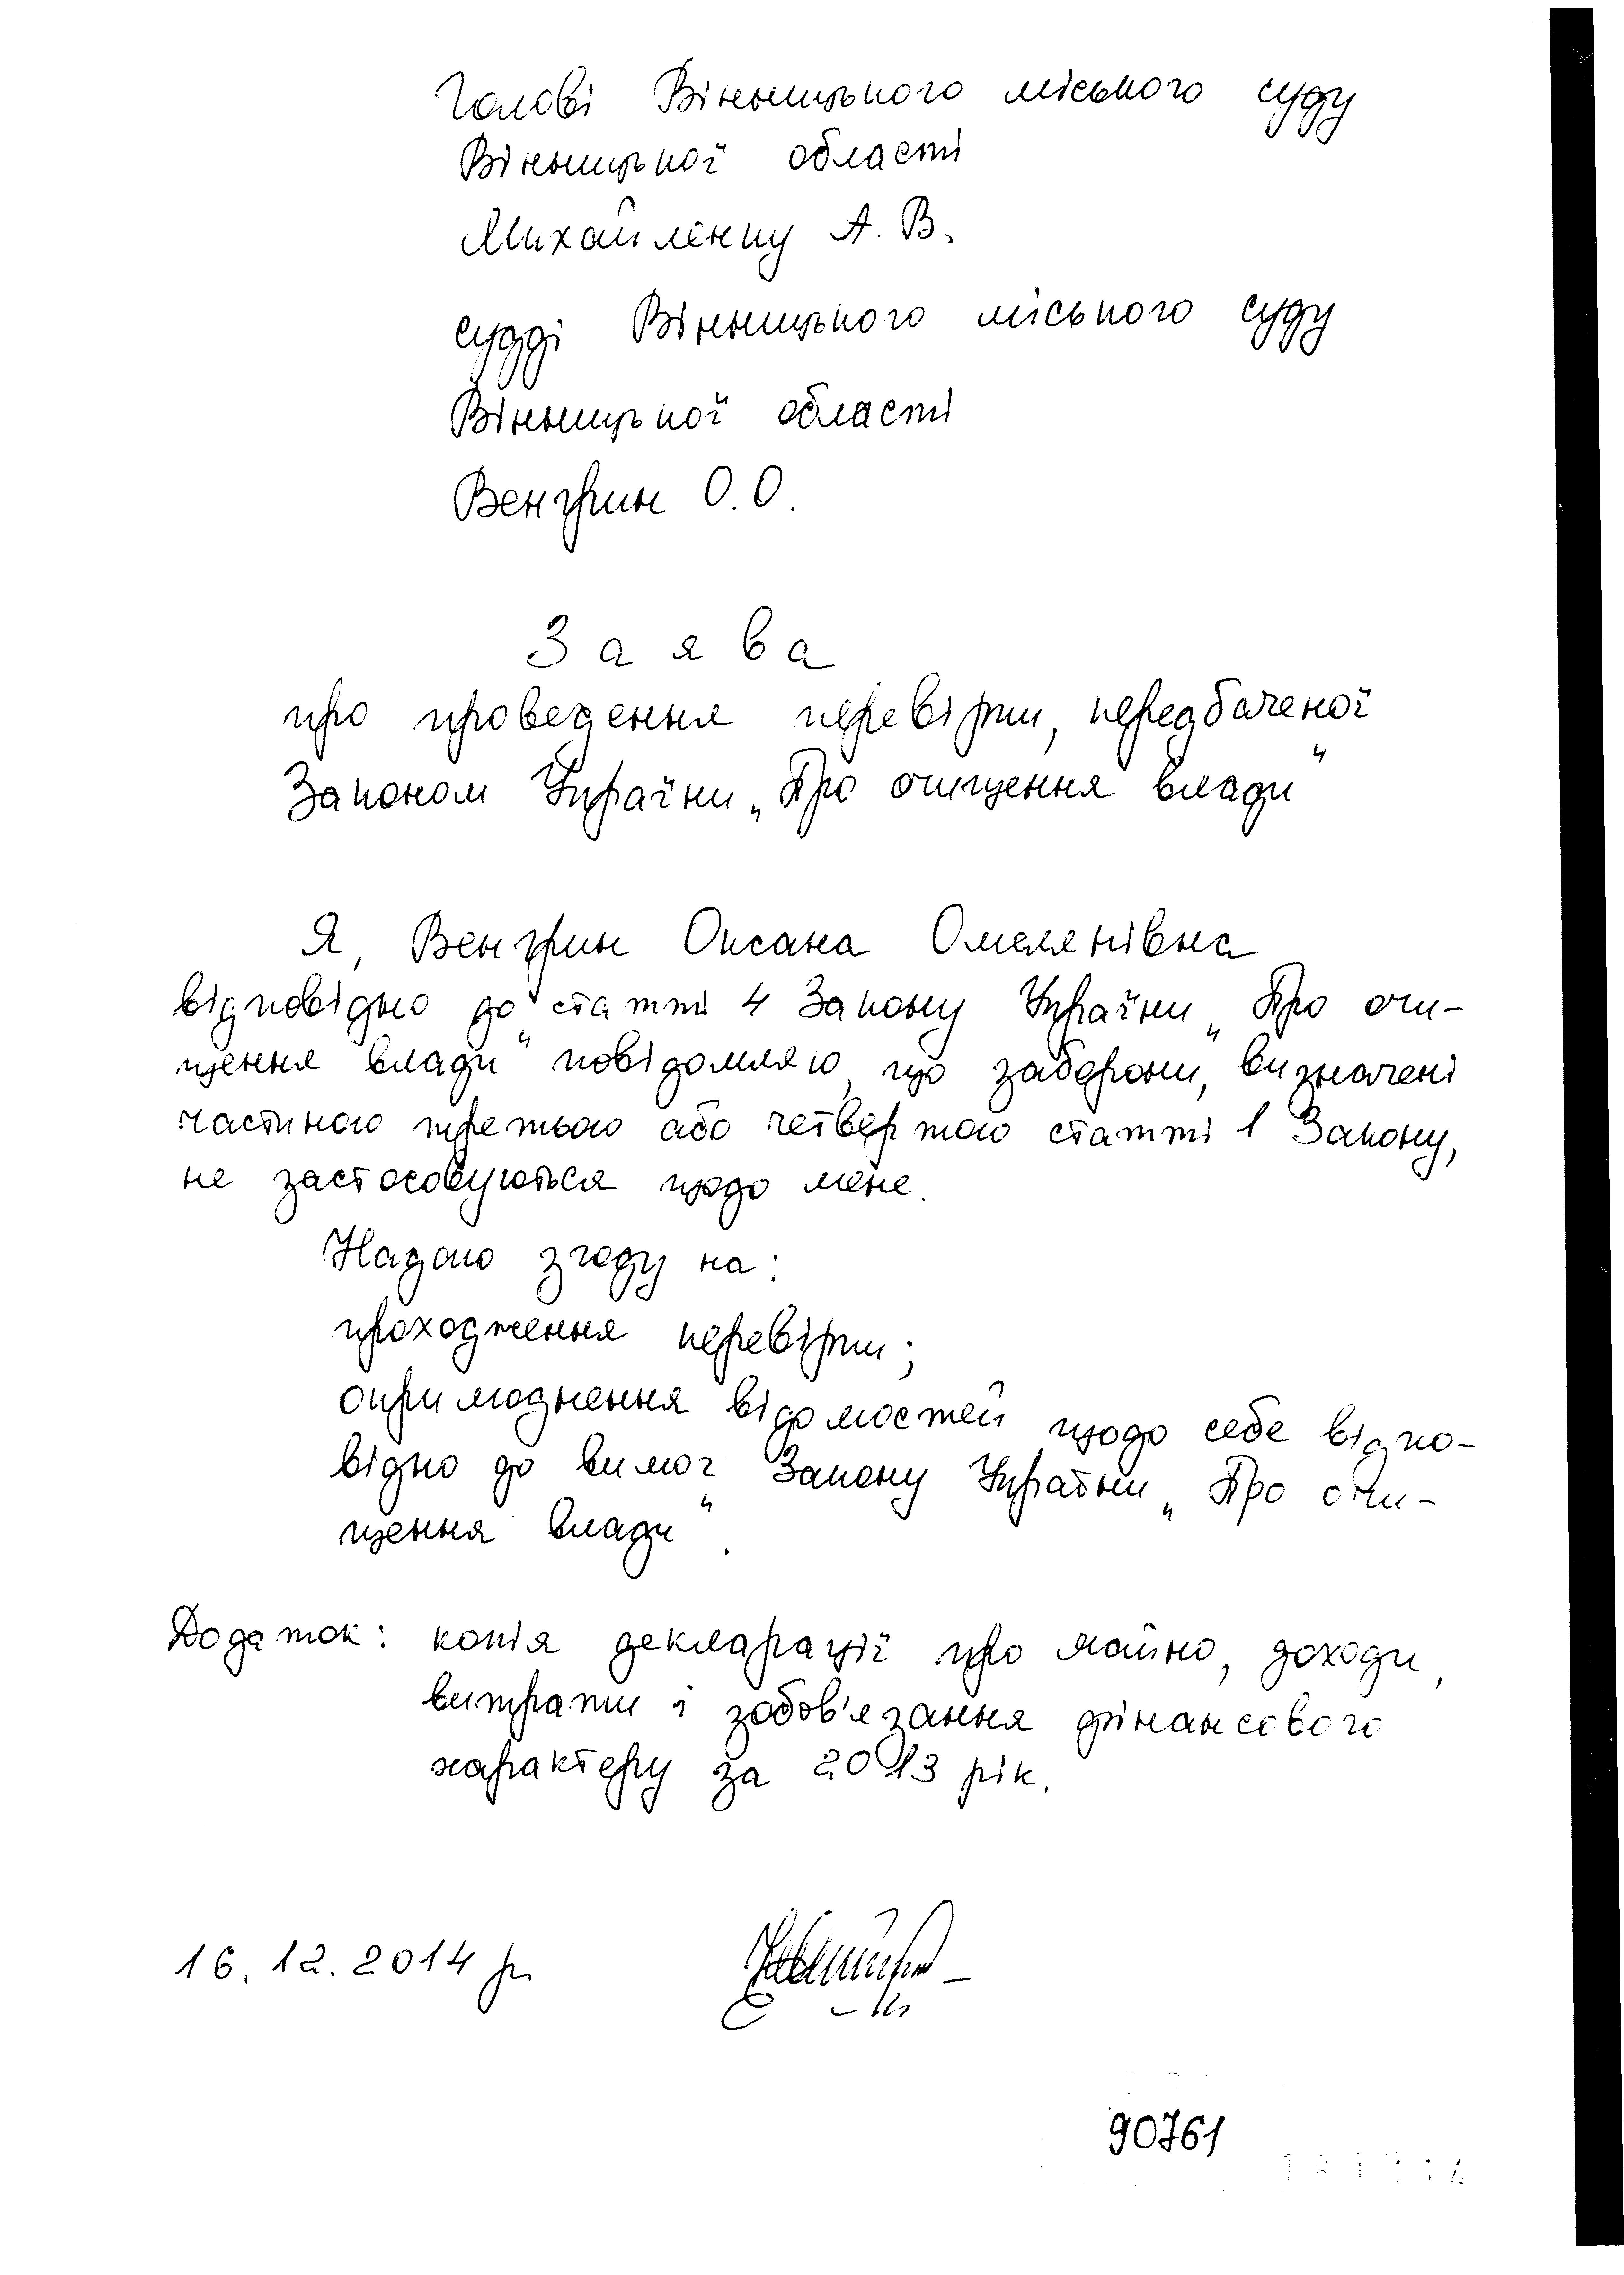 Голові Вінницького міського суду
Вінницької області
Михайленку А. В.
судді Вінницького міського суду
Вінницької області
Венгрин О.О.
Заява
про проведення перевірки, передбаченої
Законом України „Про очищення влади“
Я, Венгрин Оксана Омелянівна
відповідно до статті 4 Закону України „Про очи-
щення влади“ повідомляю, що заборони, визначені
частиною третьою або четвертою статті 1 Закону,
не застосовуються щодо мене.
Надаю згоду на:
проходження перевірки;
оприлюднення відомостей щодо себе відпо-
відно до вимог Закону України „Про очи-
щення влади“.
Додаток: копія декларації про майно, доходи,
витрати і зобов'язання фінансового
характеру за 2013 рік.
16.12.2014 р.
90761